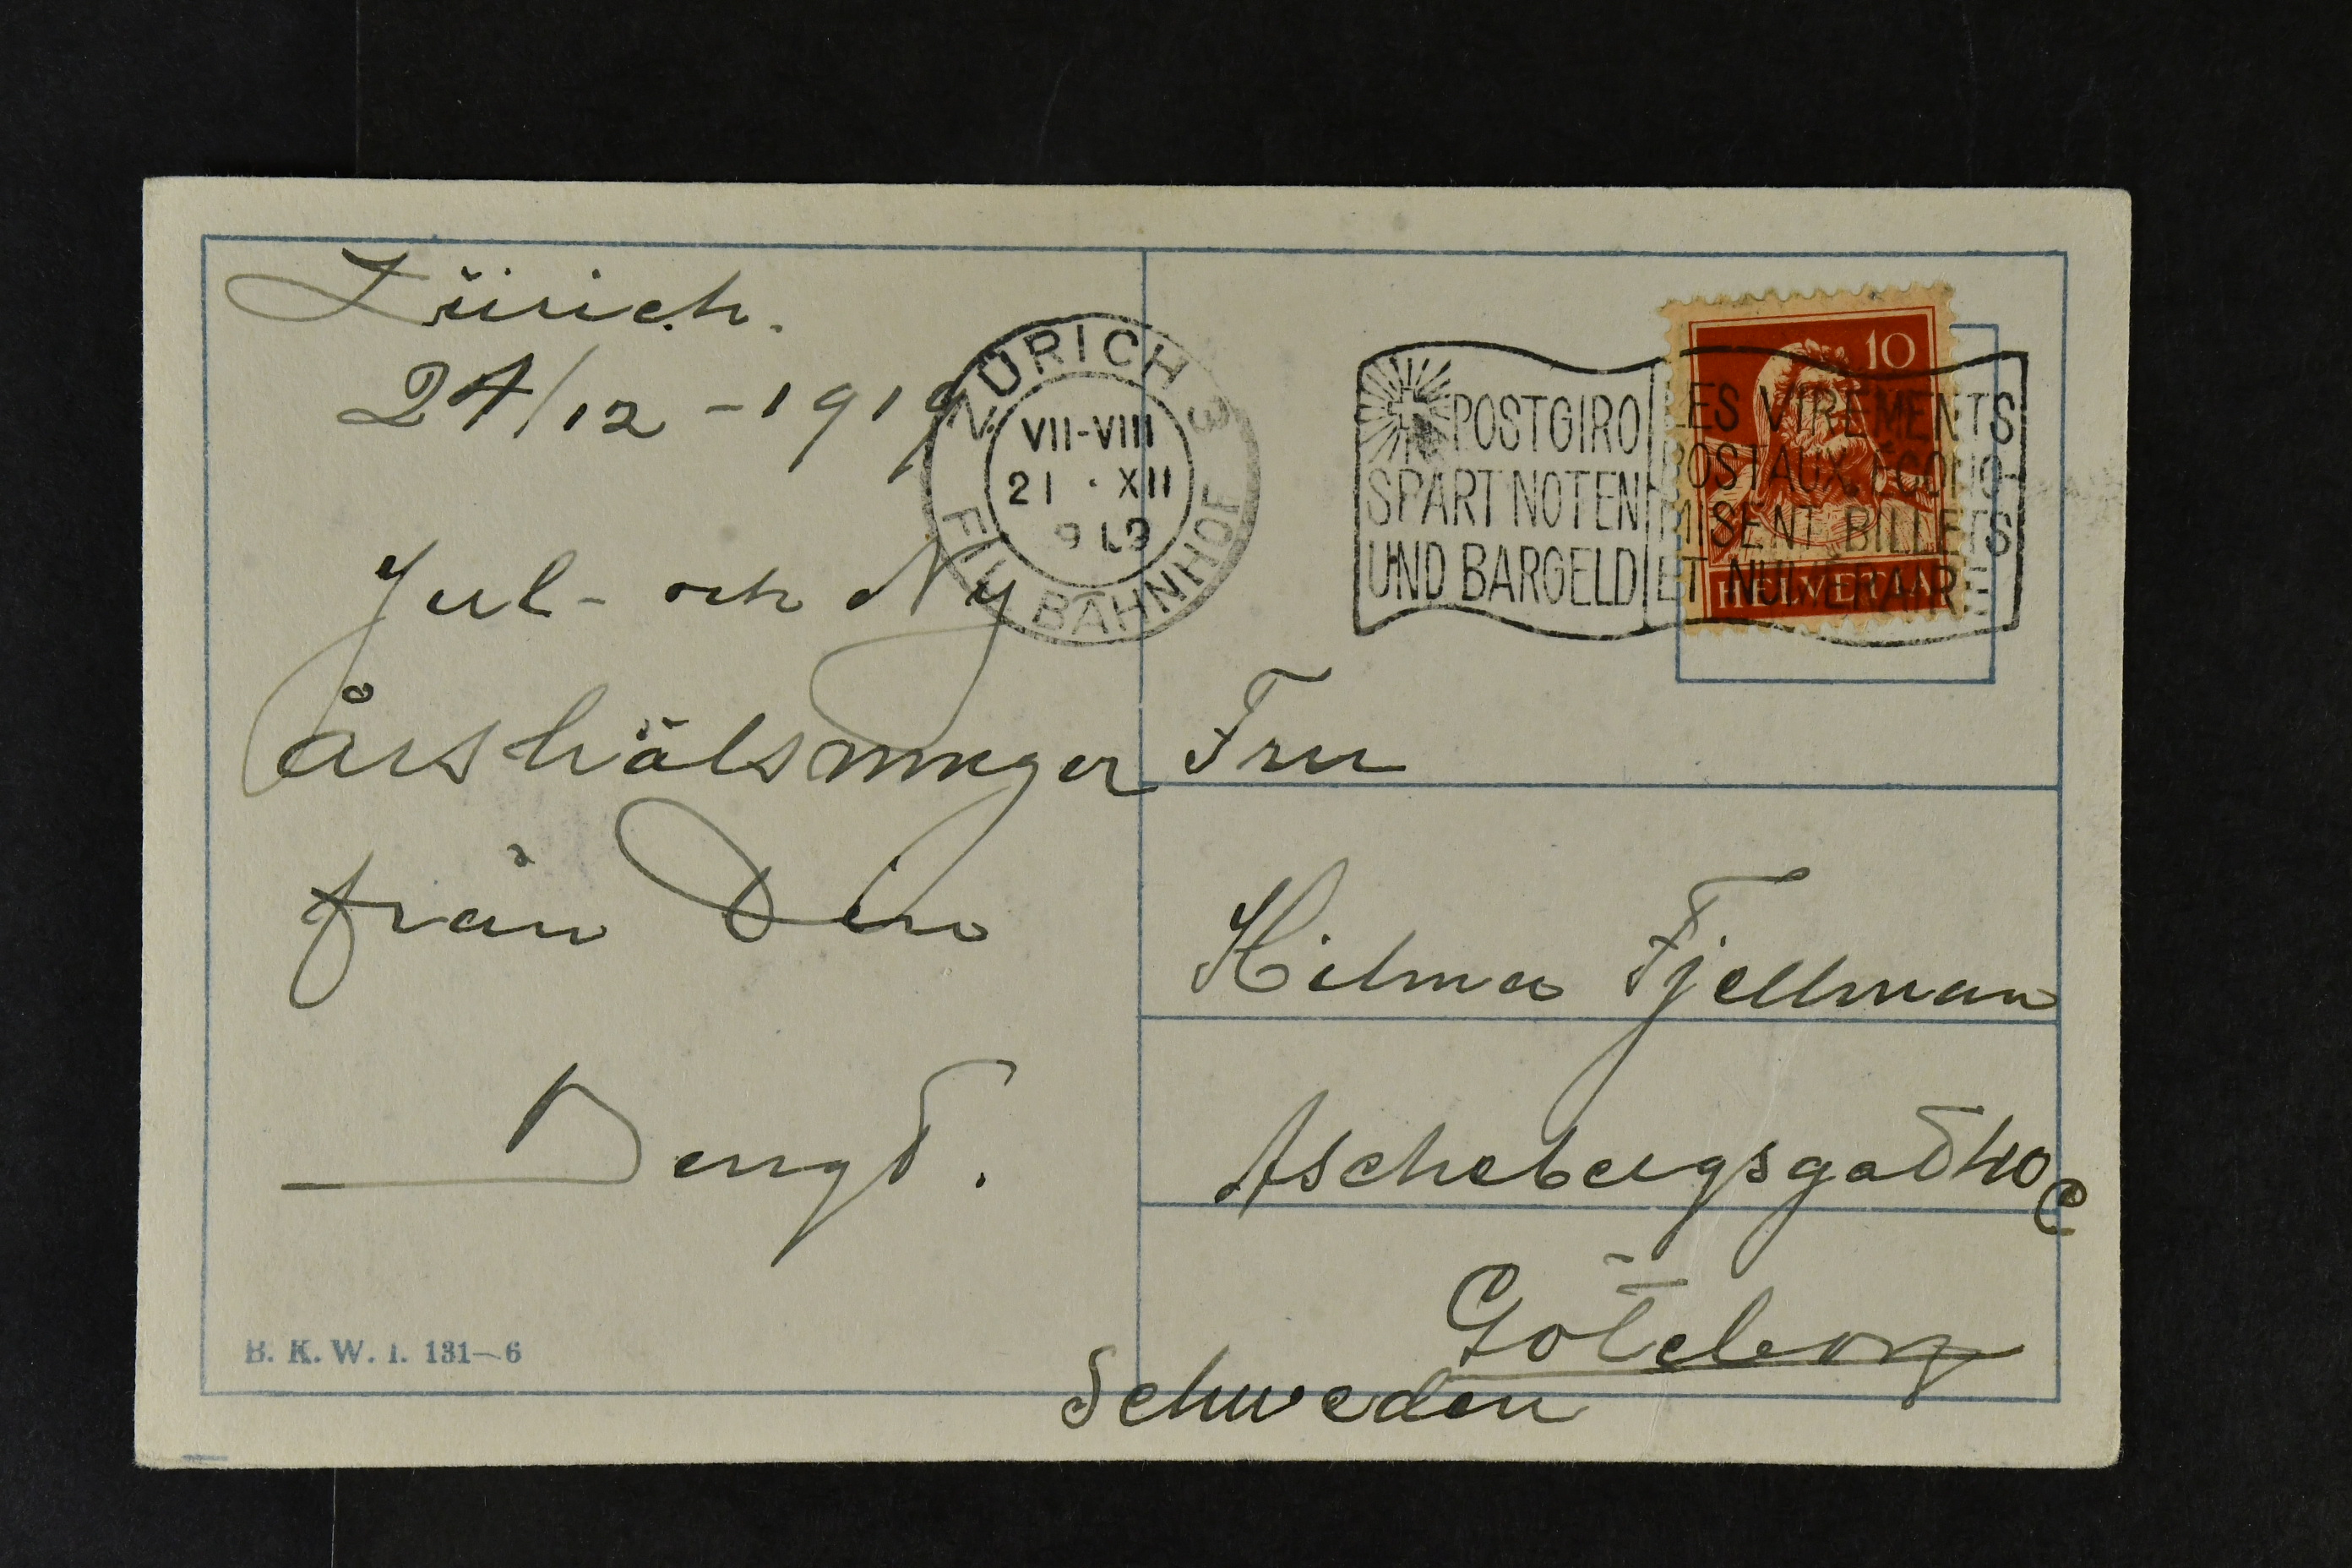 Zürich.
24/12 - 1919
Jul- och Ny
årshälsningar
från Din
Bengt.
B. K. W. I. 131—6
ZÜRICH 3
VII-VIII
21 · XII
919
FIL. BAHNHOF
POSTGIRO
SPART NOTEN
UND BARGELD
LES VIREMENTS
POSTAUX ÉCONO-
MISENT BILLETS
ET NUMÉRAIRE
10
HELVETIA
Fru
Hilma Fjellman
Aschebergsgat 40 e
Göteborg
Schweden